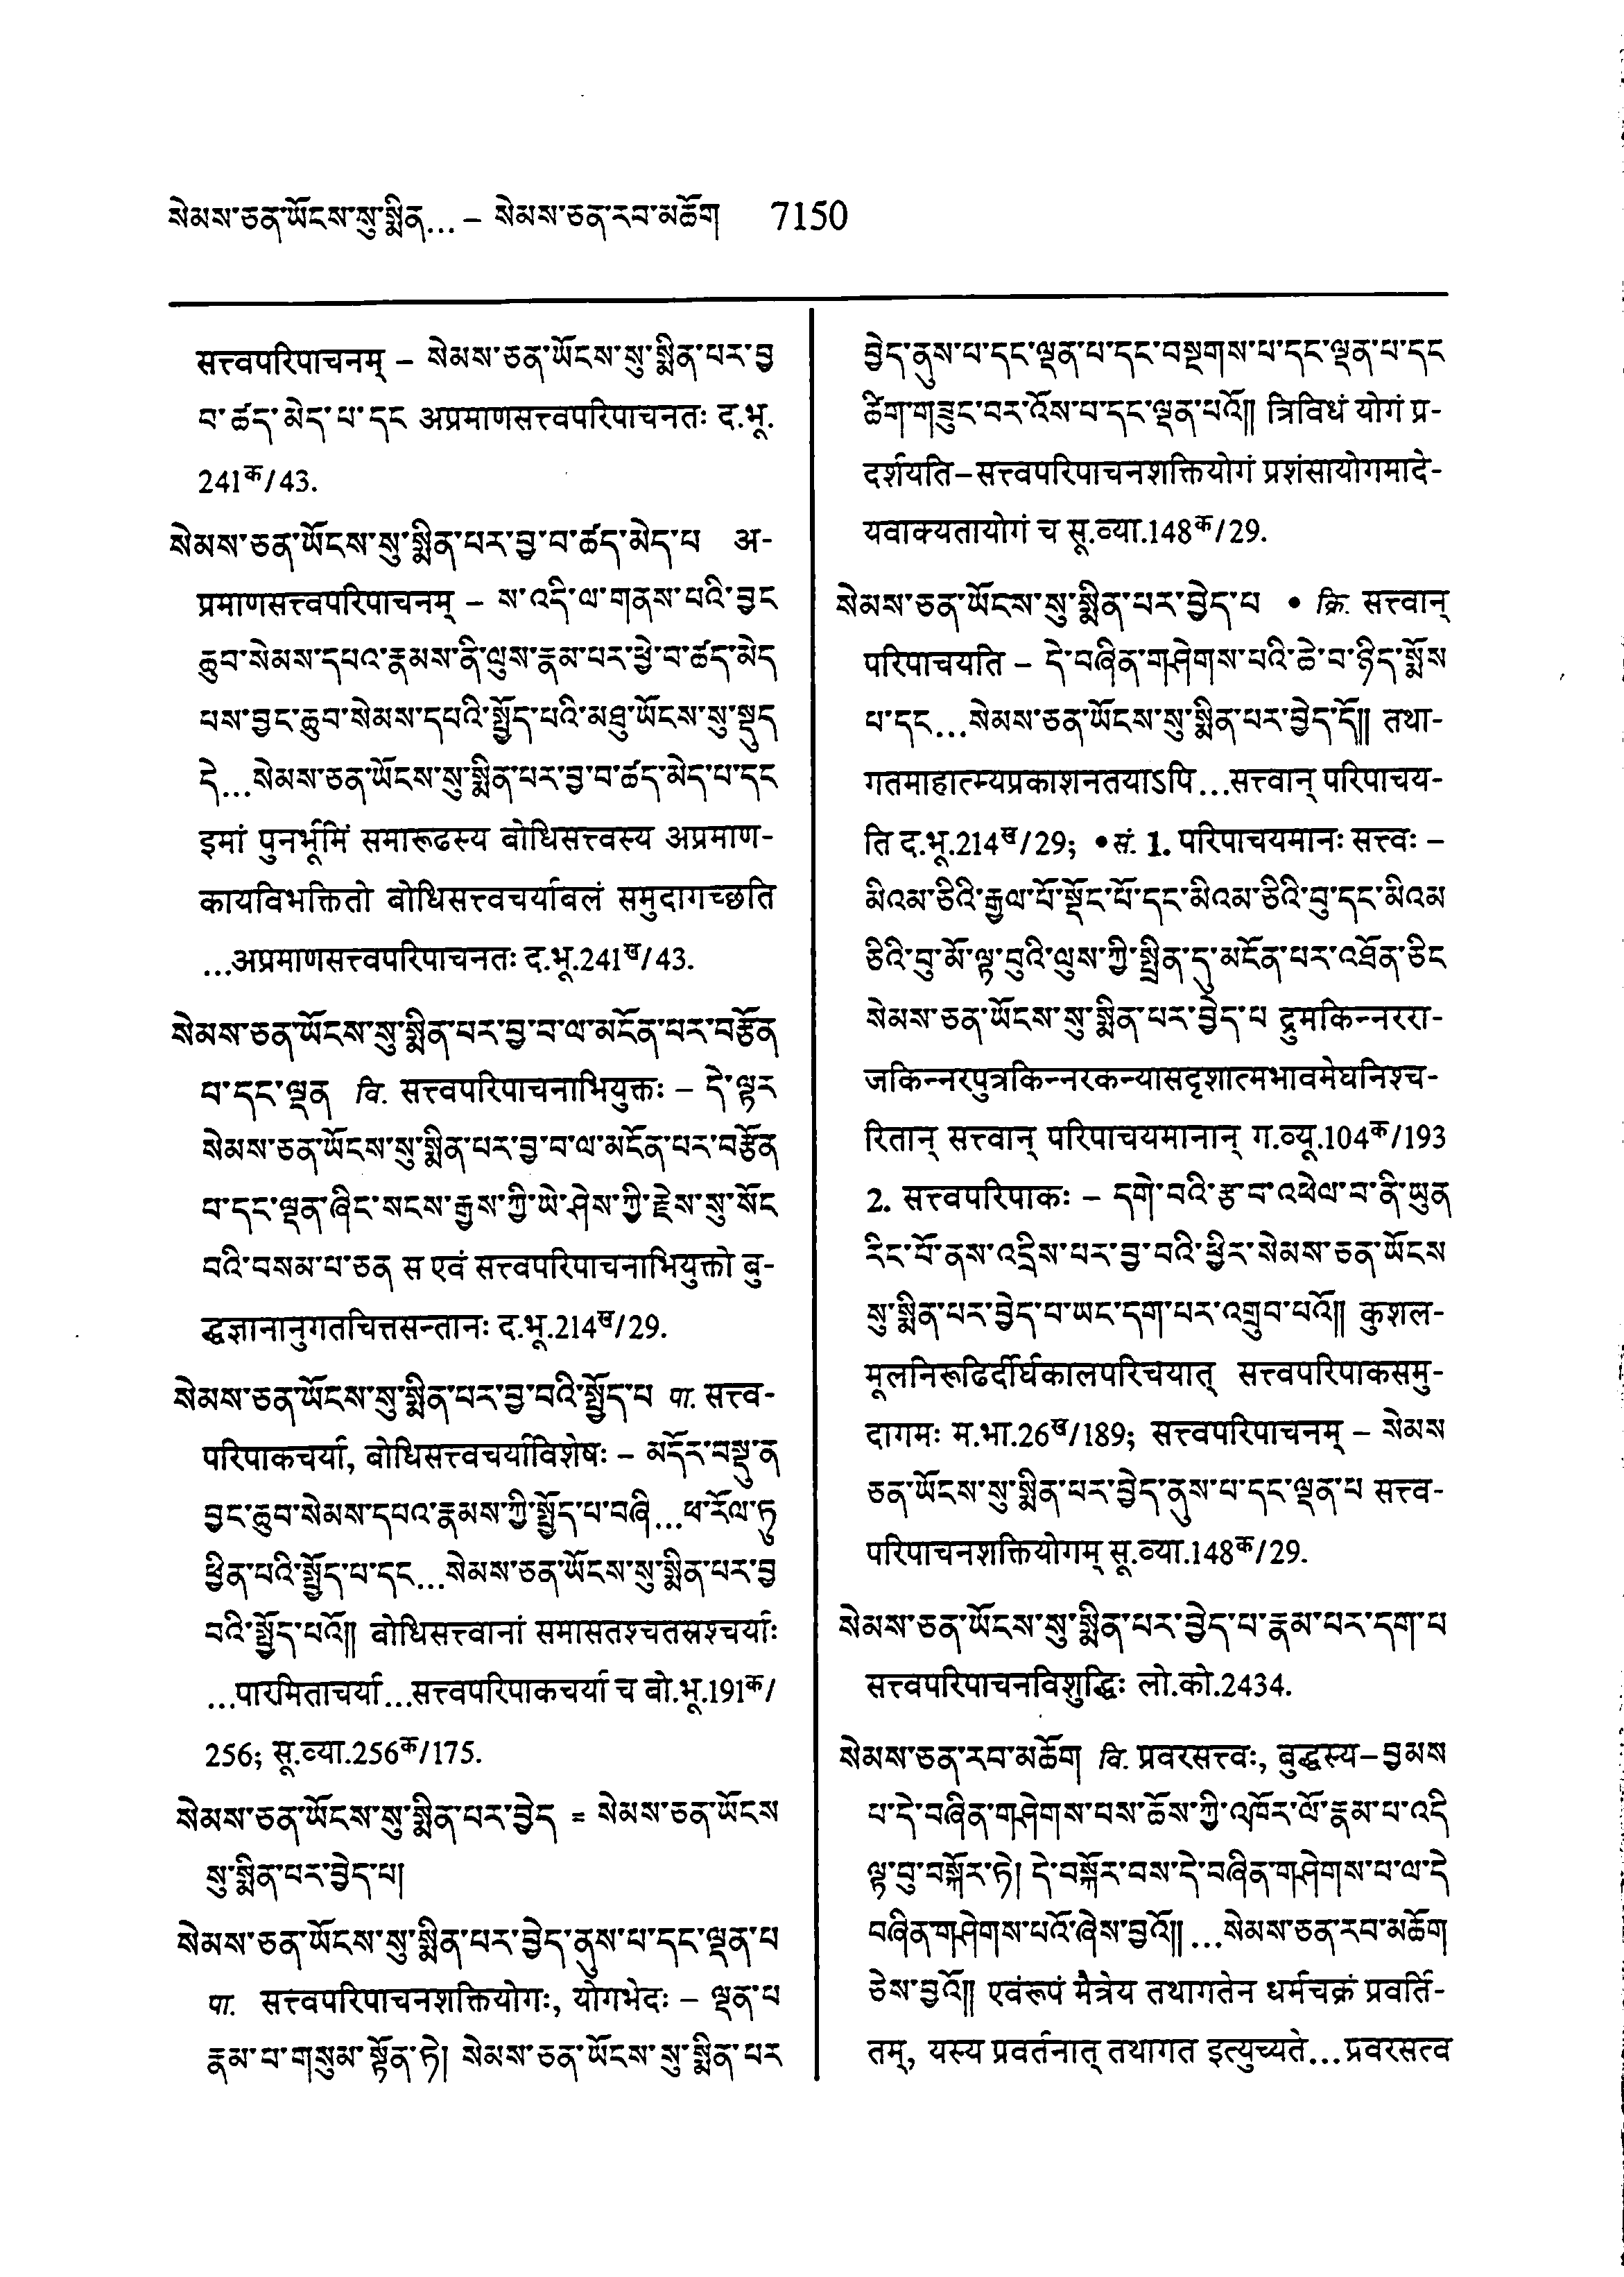 སེམས་ཅན་ཡོངས་སུ་སྨིན...– སེམས་ཅན་རབ་མཆོག 7150
सत्त्वपरिपाचनम् – སེམས་ཅན་ཡོངས་སུ་སྨིན་པར་བྱ
བ་ཚད་མེད་པ་དང अप्रमाणसत्त्वपरिपाचनतः द.भू.
241क/43.
སེམས་ཅན་ཡོངས་སུ་སྨིན་པར་བྱ་བ་ཚད་མེད་པ अ-
प्रमाणसत्त्वपरिपाचनम् – ས་འདི་ལ་གནས་པའི་བྱང
ཆུབ་སེམས་དཔའ་རྣམས་ནི་ལུས་རྣམ་པར་ཕྱེ་བ་ཚད་མེད
པས་བྱང་ཆུབ་སེམས་དཔའི་སྤྱོད་པའི་མཐུ་ཡོངས་སུ་སྡུད
དེ...སེམས་ཅན་ཡོངས་སུ་སྨིན་པར་བྱ་བ་ཚད་མེད་པ་དང
इमां पुनर्भूमिं समारूढस्य बोधिसत्त्वस्य अप्रमाण-
कायविभक्तितो बोधिसत्त्वचर्याबलं समुदागच्छति
...अप्रमाणसत्त्वपरिपाचनतः द.भू.241ख/43.
སེམས་ཅན་ཡོངས་སུ་སྨིན་པར་བྱ་བ་ལ་མངོན་པར་བརྩོན
པ་དང་ལྡན वि. सत्त्वपरिपाचनाभियुक्तः – དེ་ལྟར
སེམས་ཅན་ཡོངས་སུ་སྨིན་པར་བྱ་བ་ལ་མངོན་པར་བརྩོན
པ་དང་ལྡན་ཞིང་སངས་རྒྱས་ཀྱི་ཡེ་ཤེས་ཀྱི་རྗེས་སུ་སོང
བའི་བསམ་པ་ཅན स एवं सत्त्वपरिपाचनाभियुक्तो बु-
द्धज्ञानानुगतचित्तसन्तानः द.भू.214ख/29.
སེམས་ཅན་ཡོངས་སུ་སྨིན་པར་བྱ་བའི་སྤྱོད་པ पा. सत्त्व-
परिपाकचर्या, बोधिसत्त्वचर्याविशेषः – མདོར་བསྡུ་ན
བྱང་ཆུབ་སེམས་དཔའ་རྣམས་ཀྱི་སྤྱོད་པ་བཞི...ཕ་རོལ་ཏུ
ཕྱིན་པའི་སྤྱོད་པ་དང...སེམས་ཅན་ཡོངས་སུ་སྨིན་པར་བྱ
བའི་སྤྱོད་པའོ།། बोधिसत्त्वानां समासतश्चतस्रश्चर्याः
...पारमिताचर्या...सत्त्वपरिपाकचर्या च बो.भू.191क/
256; सू.व्या.256क/175.
སེམས་ཅན་ཡོངས་སུ་སྨིན་པར་བྱེད = སེམས་ཅན་ཡོངས
སུ་སྨིན་པར་བྱེད་པ།
སེམས་ཅན་ཡོངས་སུ་སྨིན་པར་བྱེད་ནུས་པ་དང་ལྡན་པ
पा. सत्त्वपरिपाचनशक्तियोगः, योगभेदः – ལྡན་པ
རྣམ་པ་གསུམ་སྟོན་ཏེ། སེམས་ཅན་ཡོངས་སུ་སྨིན་པར
བྱེད་ནུས་པ་དང་ལྡན་པ་དང་བསྔགས་པ་དང་ལྡན་པ་དང
ཚིག་གཟུང་བར་འོས་པ་དང་ལྡན་པའོ།། त्रिविधं योगं प्र-
दर्शयति–सत्त्वपरिपाचनशक्तियोगं प्रशंसायोगमादे-
यवाक्यतायोगं च सू.व्या.148क/29.
སེམས་ཅན་ཡོངས་སུ་སྨིན་པར་བྱེད་པ • क्रि. सत्त्वान्
परिपाचयति – དེ་བཞིན་གཤེགས་པའི་ཆེ་བ་ཉིད་སྨོས
པ་དང...སེམས་ཅན་ཡོངས་སུ་སྨིན་པར་བྱེད་དོ།། तथा-
गतमाहात्म्यप्रकाशनतयाऽपि...सत्त्वान् परिपाचय-
ति द.भू.214ख/29; • सं. 1. परिपाचयमानः सत्त्वः –
མིའམ་ཅིའི་རྒྱལ་པོ་སྡོང་པོ་དང་མིའམ་ཅིའི་བུ་དང་མིའམ
ཅིའི་བུ་མོ་ལྟ་བུའི་ལུས་ཀྱི་སྤྲིན་དུ་མངོན་པར་འཐོན་ཅིང
སེམས་ཅན་ཡོངས་སུ་སྨིན་པར་བྱེད་པ द्रुमकिन्नररा-
जकिन्नरपुत्रकिन्नरकन्यासदृशात्मभावमेघनिश्च-
रितान् सत्त्वान् परिपाचयमानान् ग.व्यू.104क/193
2. सत्त्वपरिपाकः – དགེ་བའི་རྩ་བ་འཕེལ་བ་ནི་ཡུན
རིང་པོ་ནས་འདྲིས་པར་བྱ་བའི་ཕྱིར་སེམས་ཅན་ཡོངས
སུ་སྨིན་པར་བྱེད་པ་ཡང་དག་པར་འགྲུབ་པའོ།། कुशल-
मूलनिरूढिर्दीर्घकालपरिचयात् सत्त्वपरिपाकसमु-
दागमः म.भा.26ख/189; सत्त्वपरिपाचनम् – སེམས
ཅན་ཡོངས་སུ་སྨིན་པར་བྱེད་ནུས་པ་དང་ལྡན་པ सत्त्व-
परिपाचनशक्तियोगम् सू.व्या.148क/29.
སེམས་ཅན་ཡོངས་སུ་སྨིན་པར་བྱེད་པ་རྣམ་པར་དག་པ
सत्त्वपरिपाचनविशुद्धिः लो.को.2434.
སེམས་ཅན་རབ་མཆོག वि. प्रवरसत्त्वः, बुद्धस्य–བྱམས
པ་དེ་བཞིན་གཤེགས་པས་ཆོས་ཀྱི་འཁོར་ལོ་རྣམ་པ་འདི
ལྟ་བུ་བསྐོར་ཏེ། དེ་བསྐོར་བས་དེ་བཞིན་གཤེགས་པ་ལ་དེ
བཞིན་གཤེགས་པའོ་ཞེས་བྱའོ།།...སེམས་ཅན་རབ་མཆོག
ཅེས་བྱའོ།། एवंरूपं मैत्रेय तथागतेन धर्मचक्रं प्रवर्ति-
तम्, यस्य प्रवर्तनात् तथागत इत्युच्यते...प्रवरसत्व